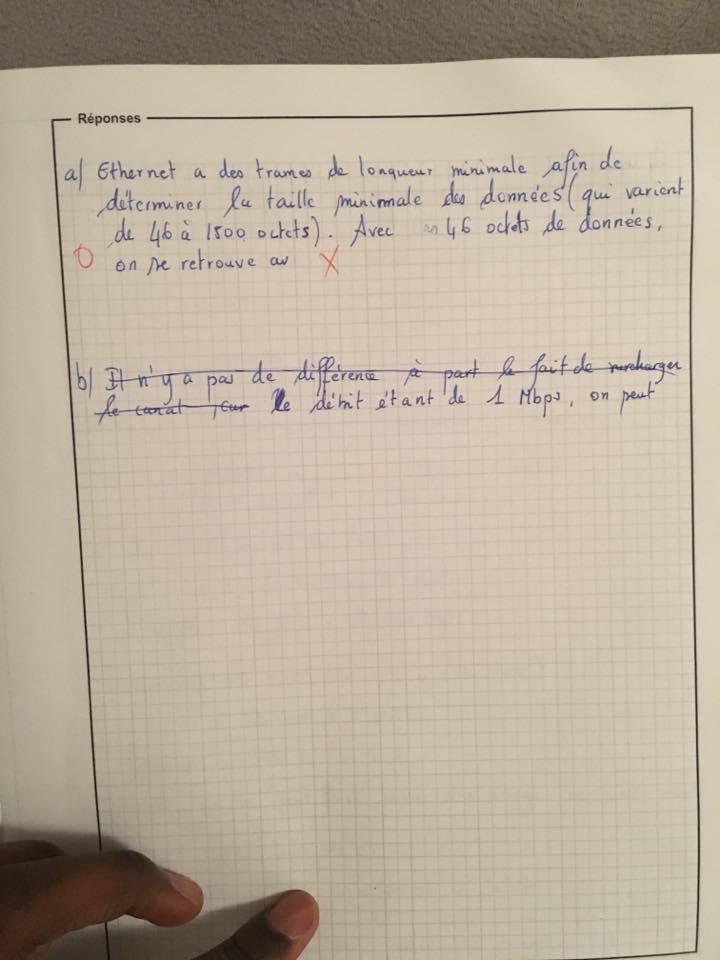 Réponses
a) Ethernet a des trames de longueur minimale afin de
déterminer la taille minimale des données (qui varient
de 46 à 1500 octets). Avec 46 octets de données,
0 on se retrouve av X
b) Il n'y a pas de différence à part le fait de surcharger
le canal, car le débit étant de 1 Mbps, on peut